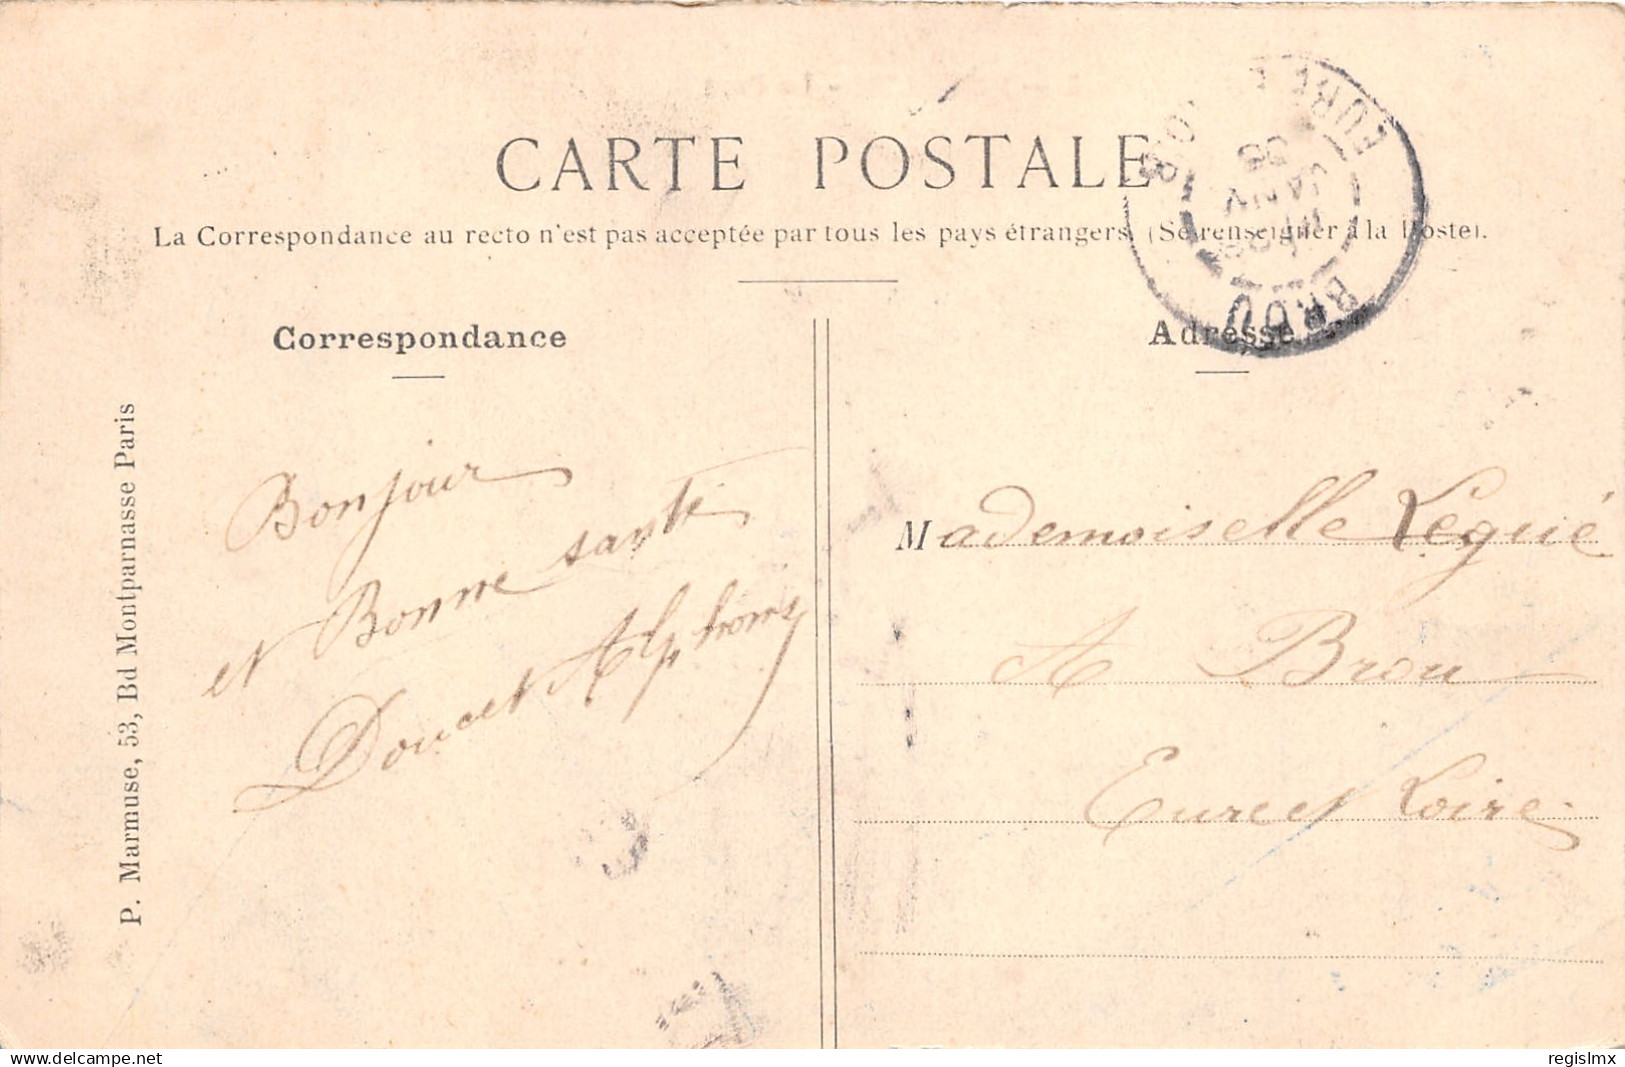 CARTE POSTALE
La Correspondance au recto n'est pas acceptée par tous les pays étrangers (Se renseigner à la Poste).
Correspondance
Bonjour
et Bonne santé
Doucet Alphonse
P. Marmuse, 53, Bd Montparnasse Paris
Adresse
BROU
JANV
EURE
Mademoiselle Légué
A Brou
Eure et Loire
regislmx